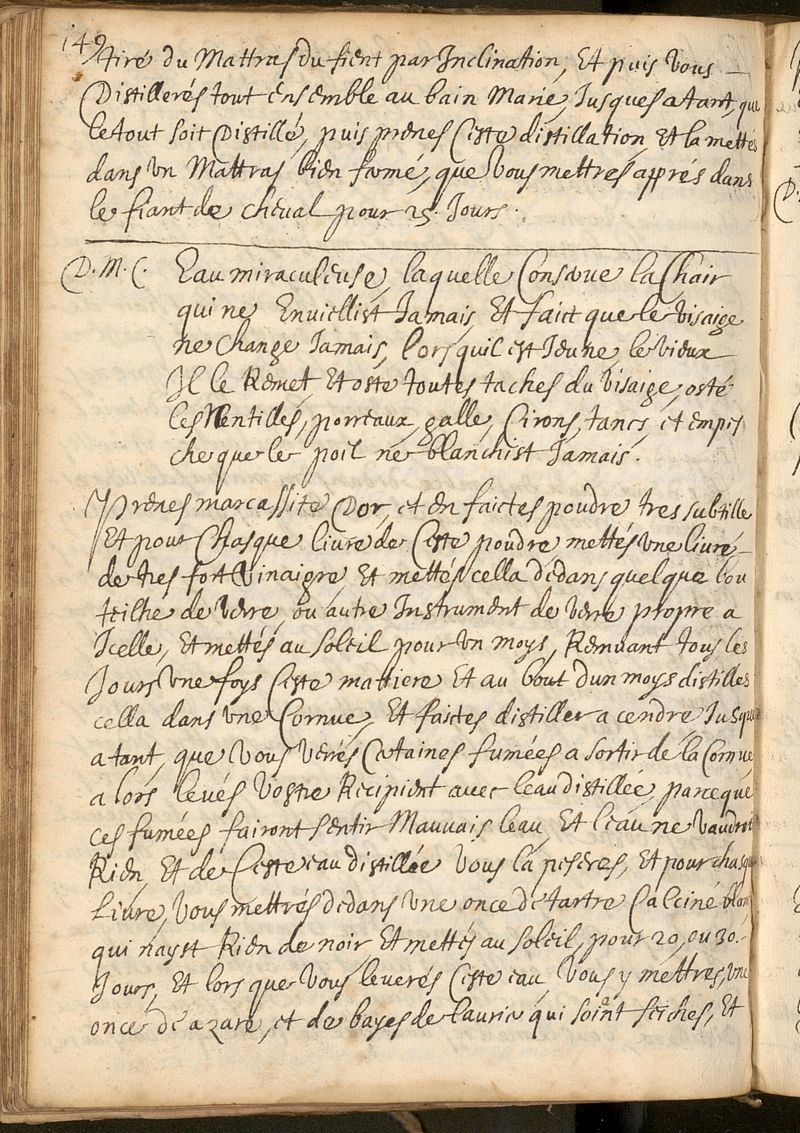 149
tiré du Mattras du fient par Inclination, Et puis Vous
Distillerés tout Ensemble au bain Marie, Jusques a tant, que
le tout soit Distillé, puis prenes Ceste distillation, Et la mettés
dans Un Mattras bien fermé, que Vous mettres apprés dans
le fiant de cheval pour 25. Jours.
D. M. C. Eau miraculeuse, laquelle Conserve la Chair
qui ne Envieillist Jamais, Et faict que le Visaige
ne Change Jamais, lors quil est Jeune le vieux
Il le Remet, Et oste toutes taches du Visaige, osté
les Nentilles, porreaux, galle, Cirons, tancs, et empes
che que le poil ne blanchist Jamais.
Prenes marcassite Dor, et en faictes poudre tres subtille
Et pour Chasque livre de Ceste poudre mettés une livre
de tres fort Vinaigre, Et mettés cella dedans quelque bou
teilhe de Verre, ou autre Instrument de Verre propre a
Icelle, Et mettés au Soleil pour Un moys, Remuant tous les
Jours Une foys Ceste matiere Et au bout dun moys distilles
cella dans une Cornue, Et faictes distiller a cendre, Jusques
a tant, que Vous Verrés Certaines fumées a sortir de la Cornue
a lors levés Vostre Recipient avec leau distillée, parceque
ces fumées fairont sentir Mauvais leau, Et leau ne Vaudroit
Rien, Et de Ceste eau distillée Vous la peseres, Et pour chasque
Livre, Vous mettrés dedans une once de tartre Calciné blanc
qui nayst Rien de noir Et mettés au Soleil, pour 20, ou 30.
Jours, Et lors que Vous leverés Ceste eau, Vous y mettres, une
once de azare, et de bayes de laurier qui soint seiches, Et